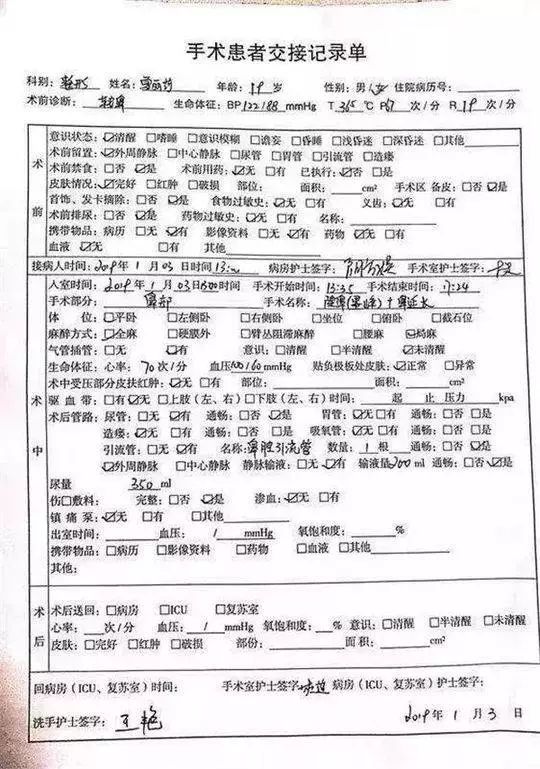 手术患者交接记录单
科别：整形 姓名： 年龄：19 岁 性别：男/女 住院病历号：
术前诊断： 生命体征：BP 122/88 mmHg T 36.5 ℃ P 次/分 R 19 次/分
术前
意识状态：☑清醒 □嗜睡 □意识模糊 □谵妄 □昏睡 □浅昏迷 □深昏迷 □其他
术前留置：☑外周静脉 □中心静脉 □尿管 □胃管 □引流管 □造瘘
术前禁食：□否 ☑是 术前用药：☑无 □有 已执行：☑否 □是
皮肤情况：☑完好 □红肿 □破损 部位： 面积： cm² 手术区 备皮：□否 ☑是
首饰、发卡摘除：□否 ☑是 食物过敏史：☑无 □有 义齿：☑无 □有
术前排尿：□否 ☑是 药物过敏史：☑无 □有 名称：
携带物品：病历 □无 ☑有 影像资料 □无 ☑有 药物 ☑无 □有
血液 ☑无 □有 其他
接病人时间：2019 年 1 月 03 日时间 13: 病房护士签字： 手术室护士签字：
术中
入室时间：2019 年 1 月 03 日 时间 手术开始时间：13:35 手术结束时间：17:24
手术部分：鼻部 手术名称：隆鼻 + 鼻延长
体 位：☑平卧 □左侧卧 □右侧卧 □坐位 □俯卧 □截石位
麻醉方式：☑全麻 □硬膜外 □臂丛阻滞麻醉 □腰麻 ☑局麻
气管插管：□无 ☑有 意识：□清醒 □半清醒 ☑未清醒
生命体征：心率：70 次/分 血压 100/60 mmHg 贴负极板处皮肤：☑正常 □异常
术中受压部分皮肤红肿：☑无 □有 部位： 面积： cm²
驱 血 带：□有 ☑无 □上肢（左、右）□下肢（左、右）时间： 起 止 压力 kpa
术后管路：尿管：□无 ☑有 通畅：□否 ☑是 胃管：☑无 □有 通畅：□否 □是
造瘘：☑无 □有 通畅：□否 □是 吸氧管：☑无 □有 通畅：□否 □是
引流管：□无 ☑有 名称：鼻腔引流管 数量：1 根 通畅：□否 ☑是
☑外周静脉 □中心静脉 静脉输液：□无 ☑有 输液量 ml 通畅：□否 ☑是
尿量 350 ml
伤口敷料： 完整：□否 ☑是 渗血：☑无 □有
镇 痛 泵：☑无 □有 □其他
出室时间： 血压： / mmHg 氧饱和度： %
携带物品：□病历 □影像资料 □药物 □血液 □其他
其他：
术后
术后送回：□病房 □ICU □复苏室
心率： 次/分 血压： / mmHg 氧饱和度： % 意识：□清醒 □半清醒 □未清醒
皮肤：□完好 □红肿 □破损 部份： 面积： cm²
回病房（ICU、复苏室）时间： 手术室护士签字： 病房（ICU、复苏室）护士签字：
洗手护士签字：王艳 2019 年 1 月 3 日